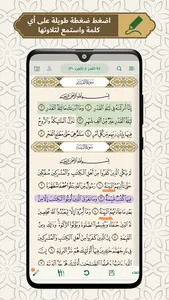 اضغط ضغطة طويلة على أي
كلمة واستمع لتلاوتها
سُورَةُ القَدْرِ
بِسْمِ اللَّهِ الرَّحْمَٰنِ الرَّحِيمِ
إِنَّا أَنزَلْنَاهُ فِي لَيْلَةِ الْقَدْرِ ١ وَمَا أَدْرَاكَ مَا لَيْلَةُ الْقَدْرِ ٢
لَيْلَةُ الْقَدْرِ خَيْرٌ مِّنْ أَلْفِ شَهْرٍ ٣ تَنَزَّلُ الْمَلَائِكَةُ وَالرُّوحُ
فِيهَا بِإِذْنِ رَبِّهِم مِّن كُلِّ أَمْرٍ ٤ سَلَامٌ هِيَ حَتَّىٰ مَطْلَعِ الْفَجْرِ ٥
سُورَةُ البَيِّنَةِ
بِسْمِ اللَّهِ الرَّحْمَٰنِ الرَّحِيمِ
لَمْ يَكُنِ الَّذِينَ كَفَرُوا مِنْ أَهْلِ الْكِتَابِ وَالْمُشْرِكِينَ مُنفَكِّينَ
حَتَّىٰ تَأْتِيَهُمُ الْبَيِّنَةُ ١ رَسُولٌ مِّنَ اللَّهِ يَتْلُو صُحُفًا مُّطَهَّرَةً ٢
فِيهَا كُتُبٌ قَيِّمَةٌ ٣ وَمَا تَفَرَّقَ الَّذِينَ أُوتُوا الْكِتَابَ إِلَّا مِن بَعْدِ
مَا جَاءَتْهُمُ الْبَيِّنَةُ ٤ وَمَا أُمِرُوا إِلَّا لِيَعْبُدُوا اللَّهَ مُخْلِصِينَ لَهُ